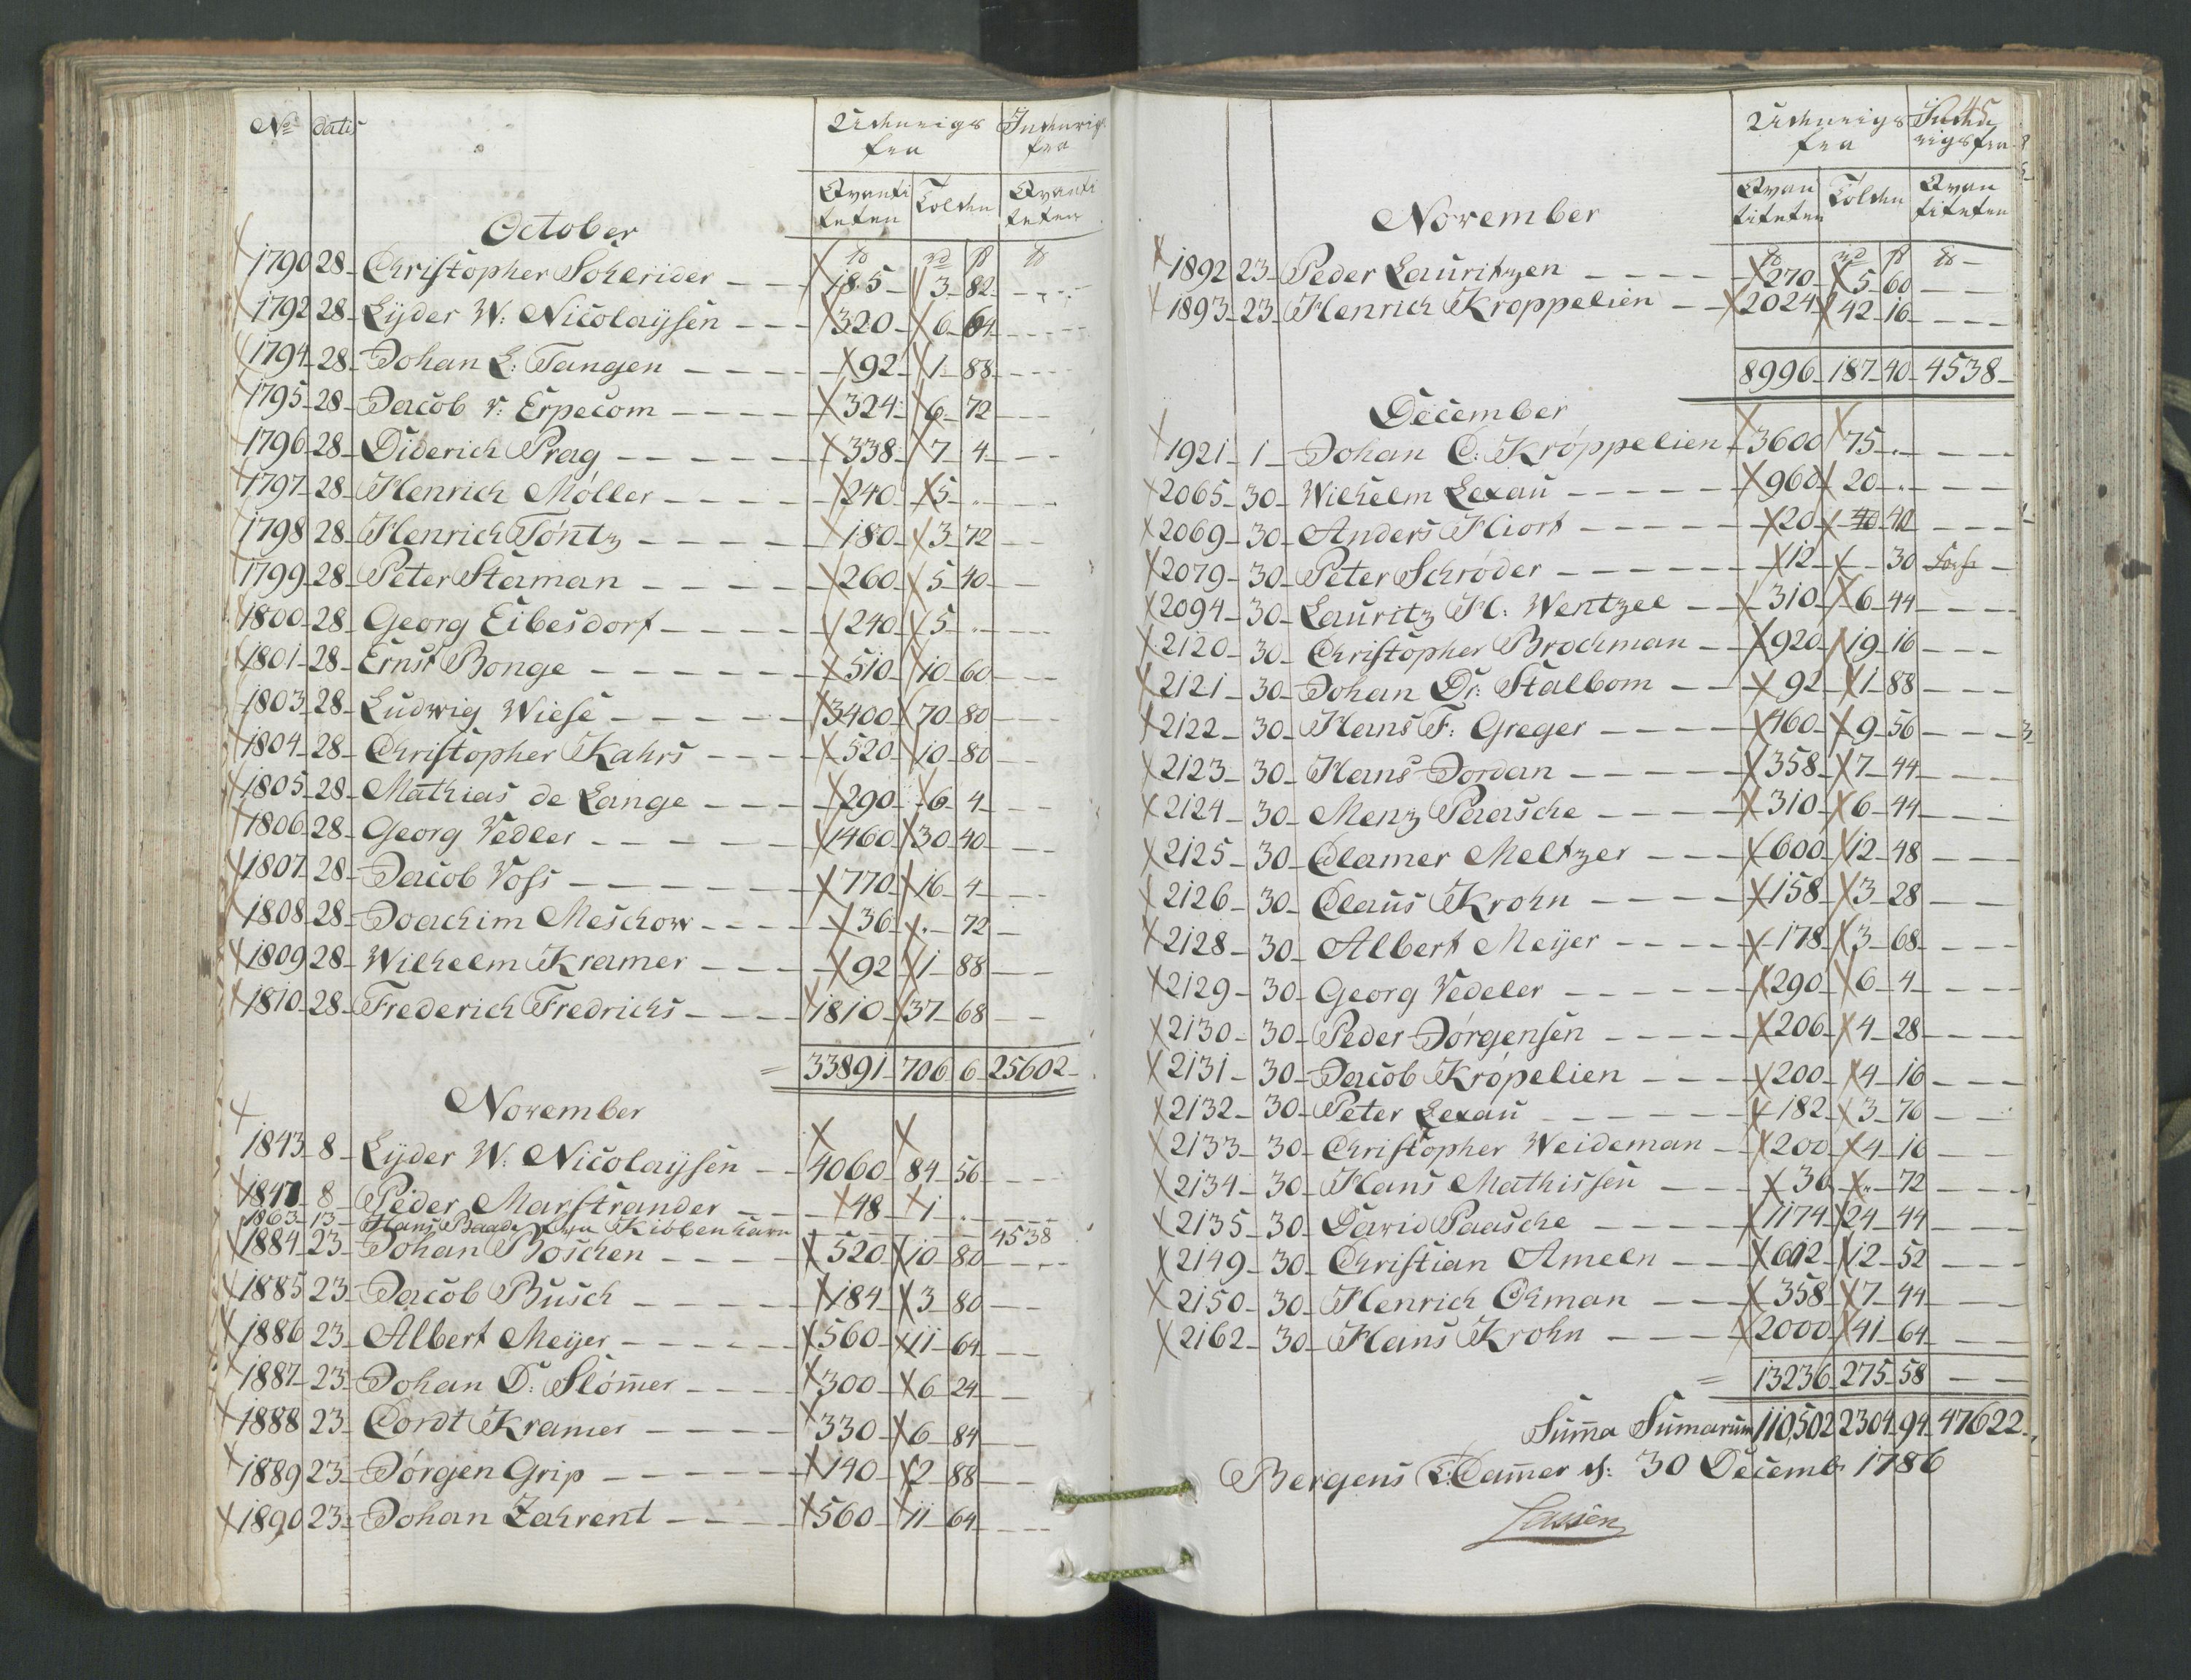 No datis Udenrigs fra Indenrigs fra
Qvantiteten Tolden Qvantiteten
October
℔ rd ß ℔
1790 28 Christopher Schrider 185 3 82
1792 28 Lyder W: Nicolaysen 320 6 64
1794 28 Johan L: Tangen 92 1 88
1795 28 Jacob v: Erpecom 324 6 72
1796 28 Diderich Prag 338 7 4
1797 28 Henrich Møller 240 5 .
1798 28 Henrich Töntz 180 3 72
1799 28 Peter Staman 260 5 40
1800 28 Georg Eibesdorf 240 5 .
1801 28 Ernst Bonge 510 10 60
1803 28 Ludwig Wiese 3400 70 80
1804 28 Christopher Kahrs 520 10 80
1805 28 Mathias de Lange 290 6 4
1806 28 Georg Vedler 1460 30 40
1807 28 Jacob Voss 770 16 4
1808 28 Joachim Meschow 36 . 72
1809 28 Wilhelm Kramer 92 1 88
1810 28 Frederich Fredrichs 1810 37 68
33891 706 6 25602
November
1843 8 Lyder W: Nicolaysen 4060 84 56
1847 8 Peder Marstrander 48 1 .
1863 13 Hans Baade fra Kiøbenhavn 4538
1884 23 Johan Boschen 520 10 80
1885 23 Jacob Busch 184 3 80
1886 23 Albert Meyer 560 11 64
1887 23 Johan D: Slömer 300 6 24
1888 23 Cordt Kramer 330 6 84
1889 23 Jörgen Grip 140 2 88
1890 23 Johan Zahrent 560 11 64
45
Udenrigs fra Indenrigs fra
Qvantiteten Tolden Qvantiteten
November
℔ rd ß ℔
1892 23 Peder Lauritzen 270 5 60
1893 23 Henrich Kroppelien 2024 42 16
8996 187 40 4538
December
1921 1 Johan C: Krøppelien 3600 75 .
2065 30 Wilhelm Lexau 960 20 .
2069 30 Anders Hiort 20 40
2079 30 Peter Schrøder 12 30
2094 30 Lauritz H: Wentzel 310 6 44
2120 30 Christopher Brochman 920 19 16
2121 30 Johan Dr: Stalbom 92 1 88
2122 30 Hans F: Greger 460 9 56
2123 30 Hans Jordan 358 7 44
2124 30 Menz Paasche 310 6 44
2125 30 Clamer Meltzer 600 12 48
2126 30 Claus Krohn 158 3 28
2128 30 Albert Meyer 178 3 68
2129 30 Georg Vedeler 290 6 4
2130 30 Peder Jörgensen 206 4 28
2131 30 Jacob Kröpelien 200 4 16
2132 30 Peter Lexau 182 3 76
2133 30 Christopher Weideman 200 4 16
2134 30 Hans Mathissen 36 . 72
2135 30 David Paasche 1174 24 44
2149 30 Christian Ameln 612 12 52
2150 30 Henrich Ohman 358 7 44
2162 30 Hans Krohn 2000 41 64
13236 275 58
Suma Sumarum 110,502 2304 94 47622
Bergens T: Camer d: 30 Decemb 1786
Lassen